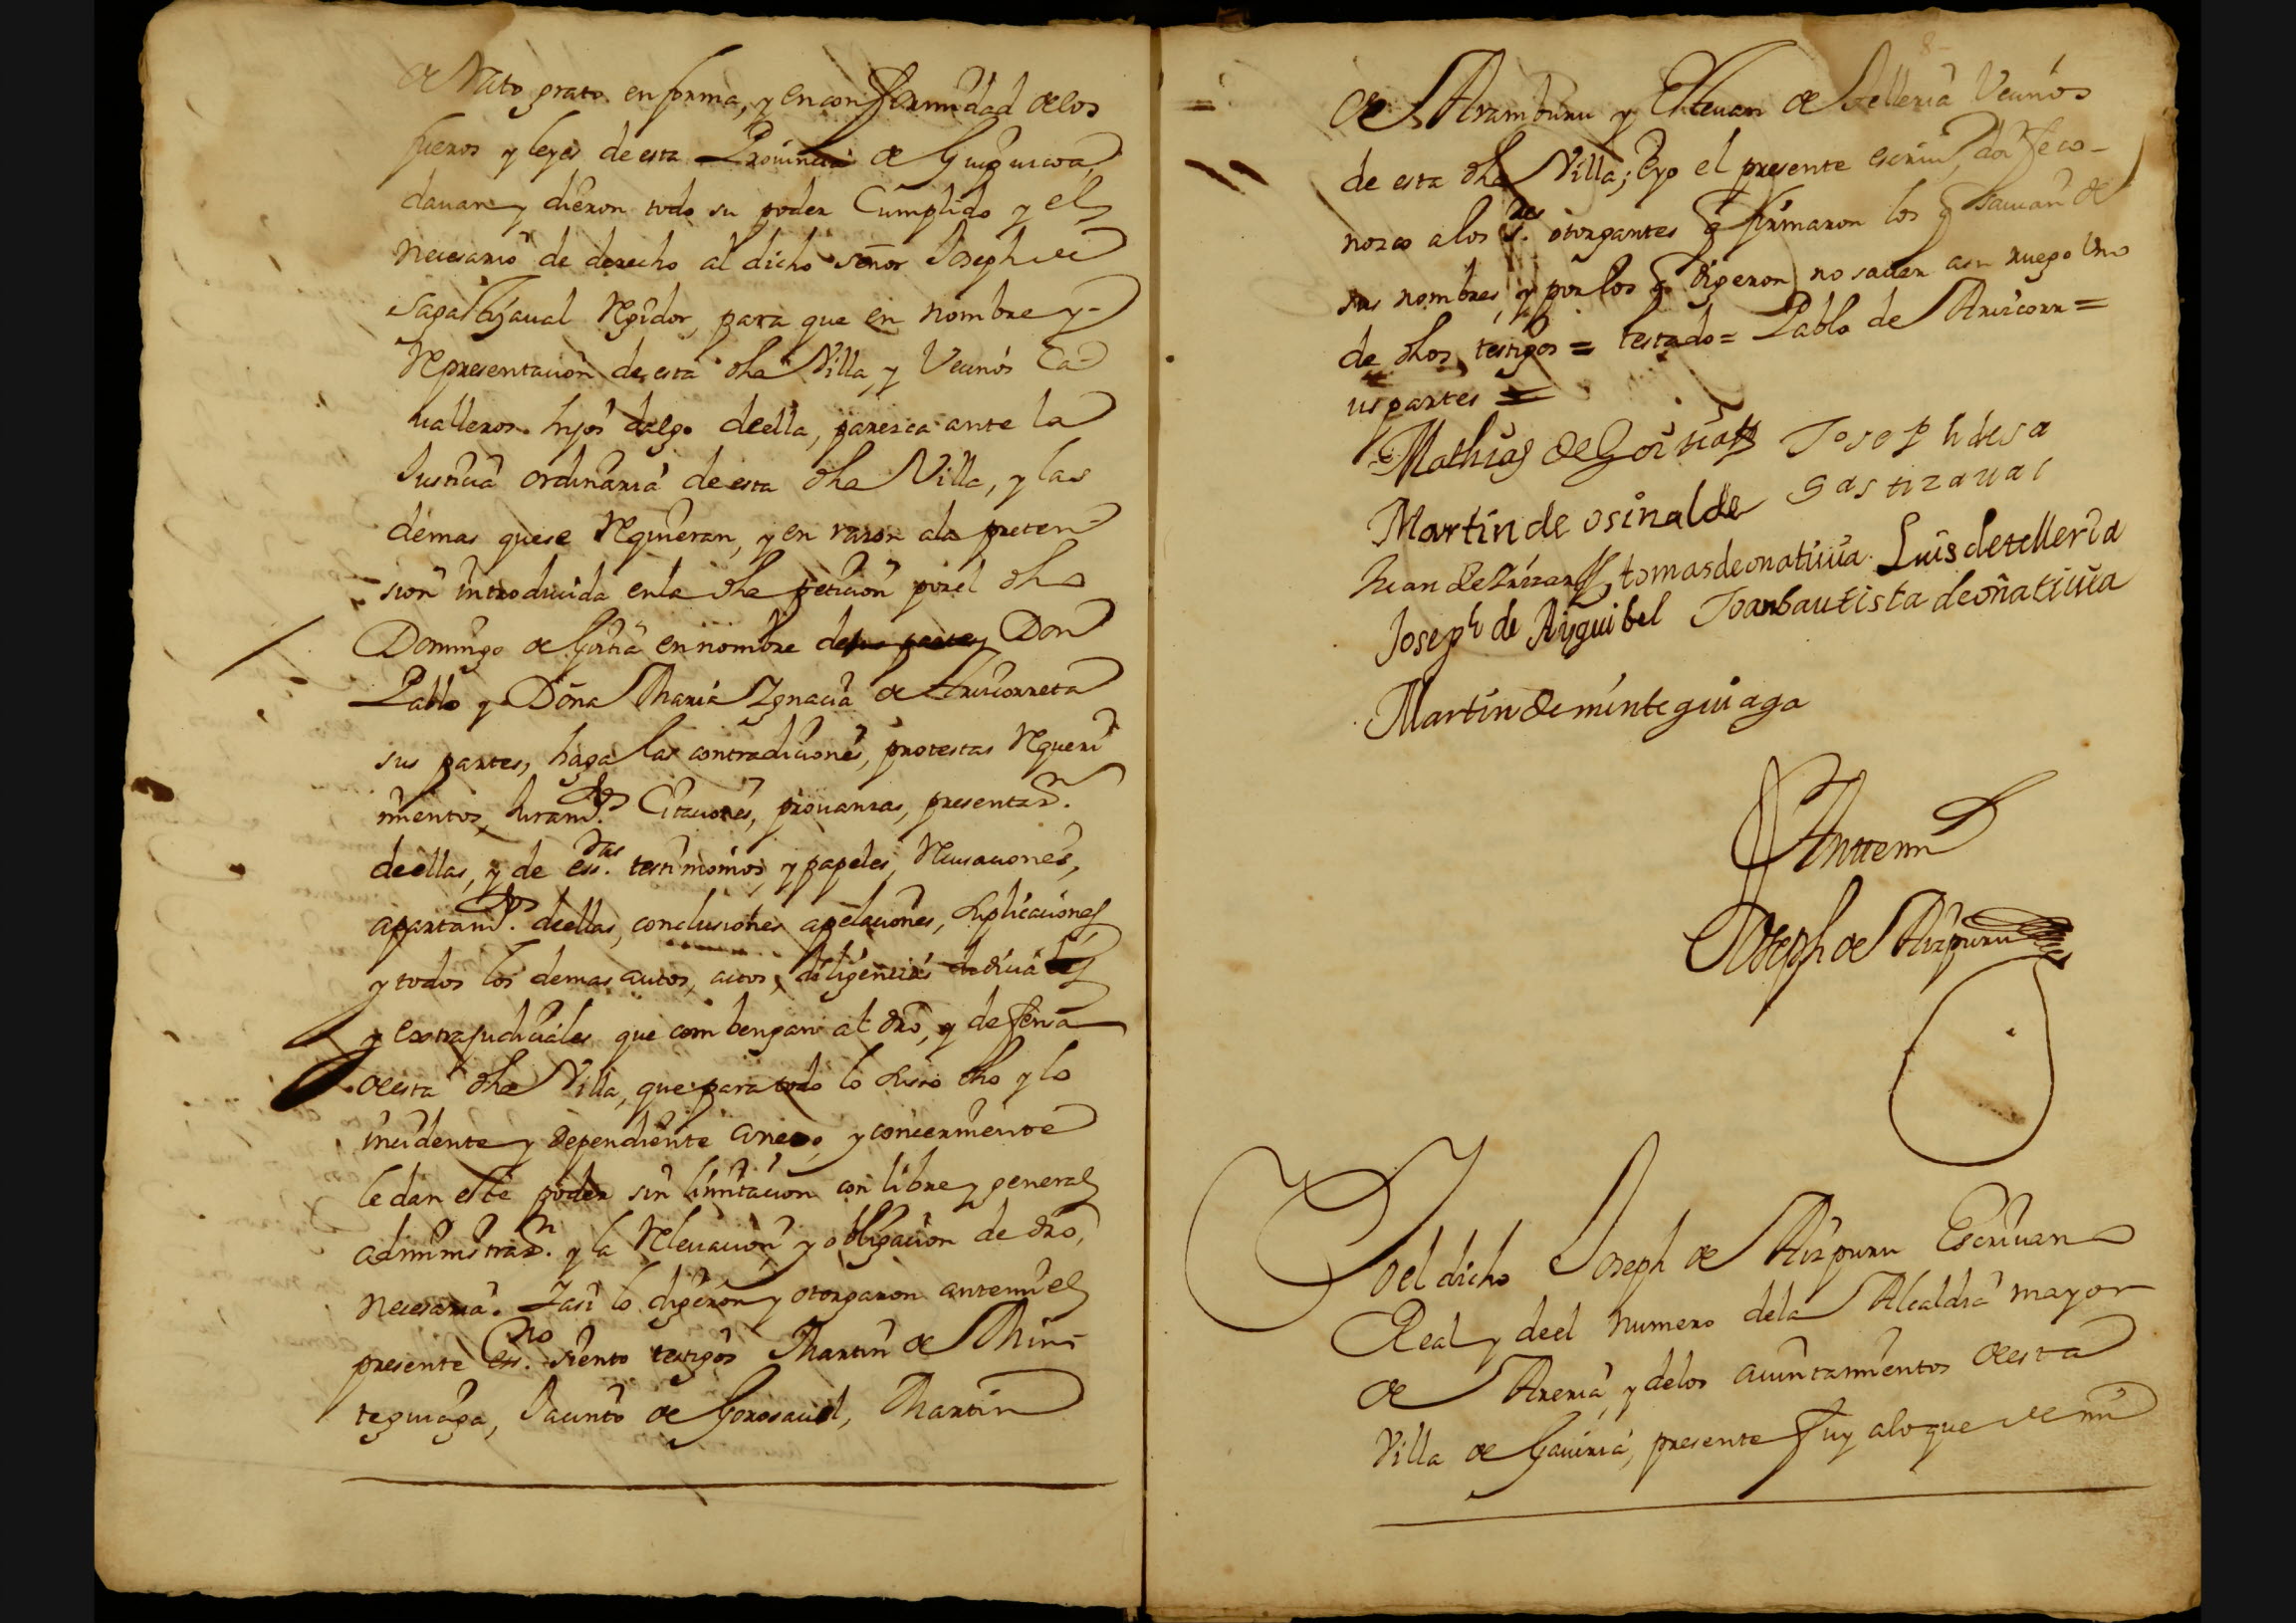 de Rato grato en forma, y en conformidad delos
fueros y leyes de esta Provincia de Guipuzcoa,
davan y dieron todo su poder Cumplido y el
necesario de derecho al dicho señor Joseph de
Sagastizaval Regidor, para que en nombre y
Representacion de esta dha Villa y Vecinos Ca
valleros hijos dalgo de ella, paresca ante la
Justicia ordinaria de esta dha Villa, y las
demas que se Requieran, y en razon ala preten
sion introducida enla dha peticion por el dho
Domingo de Gortia en nombre de sus partes Don
Pablo y Doña Maria Ygnacia de Aruicorreta
sus partes, haga las contradiciones, protestas Requeri
mientos, Juramtos. Citaciones, provanzas, presentazn.
de ellas, y de essras. testimonios y papeles, Recusaciones,
apartamtos. de ellas, conclusiones apelaciones, suplicaciones
y todos los demas autos, actos, diligencias Judiciales
y extrajudiciales que combengan al dro, y defensa
de esta dha Villa, que para todo lo suso dho y lo
incidente y dependiente anexo, y concerniente
le dan este poder sin limitacion con libre y general
administrazn. y la Relevacion, y obligacion de dro,
necesaria. Y asi lo digeron y otorgaron antemi el
presente essno. siento testigos Martin de Min
teguiaga, Jacinto de Gorosavel, Martin
de Aramburu y Estevan de Telleria Vecinos
de esta dha Villa; Eyo el presente escrivo doi fe co-
nozco alos SSres. otorgantes q firmaron los q savian de
sus nombres, y por los q digeron no saver asu ruego Uno
de dhos testigos = testado = Pablo de Aruicorr =
us partes =
Mathias de Gortia Joseph de sa
gastizaval
Martin de osinalde
Juan de tomas de onativia. Luis de telleria
Joseph de Ayguibel Joan bautista de oñativia
Martin de minteguiaga
Antemi
Joseph de Aizpuru
Yo el dicho Joseph de Aizpuru Escrivano
Real y deel numero dela Alcaldia mayor
de Areria, y delos aiuntamientos de esta
Villa de Gaviria, presente fuy alo que de mi